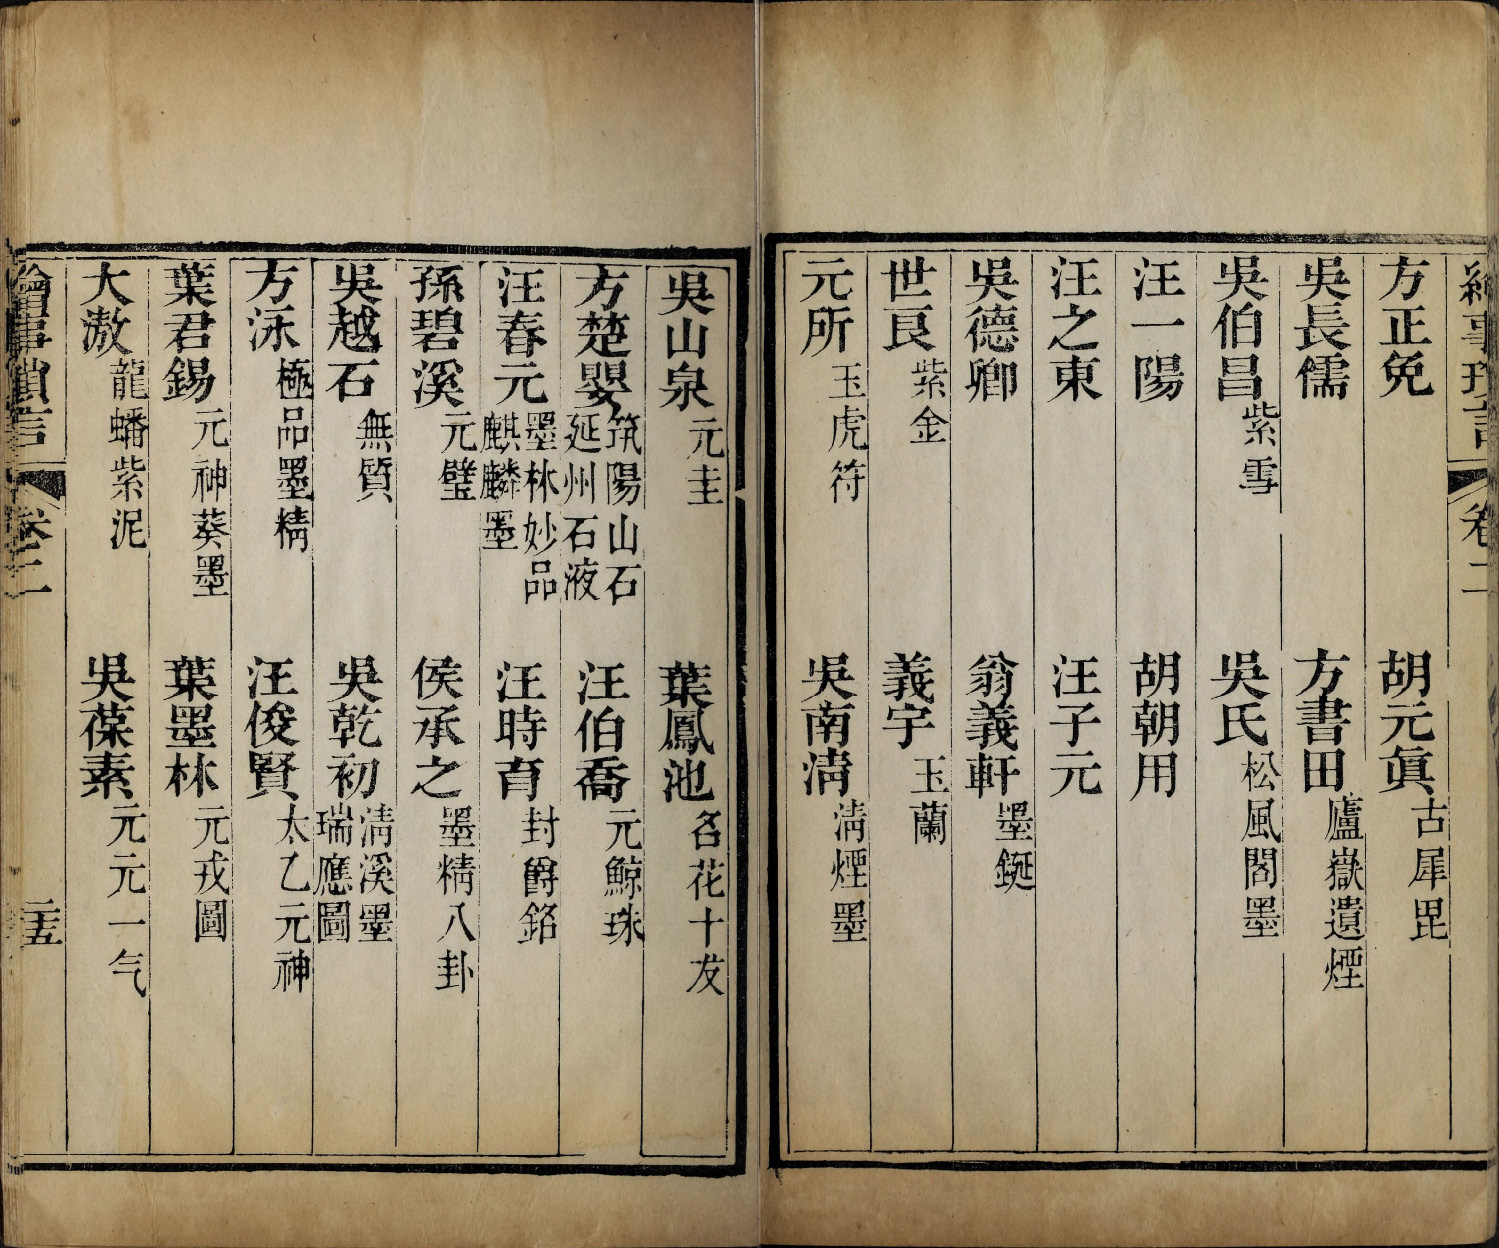 繪事瑣言 卷二
方正免 胡元眞古犀毘
吳長儒 方書田廬嶽遺煙
吳伯昌紫雪 吳氏松風閣墨
汪一陽 胡朝用
汪之東 汪子元
吳德卿 翁義軒墨鋋
世㫰紫金 義宇玉蘭
元所玉虎符 吳南淸淸煙墨
吳山泉元圭 葉鳳池名花十友
方楚嬰筑陽山石延州石液 汪伯喬元鯨珠
汪春元墨林妙品麒麟墨 汪時育封爵銘
孫碧溪元璧 侯承之墨精八卦
吳越石無質 吳乾初淸溪墨瑞應圖
方泳極品墨精 汪俊賢太乙元神
葉君錫元神葵墨 葉墨林元戎圖
大激龍蟠紫泥 吳葆素元元一气
繪事瑣言 卷二 二五